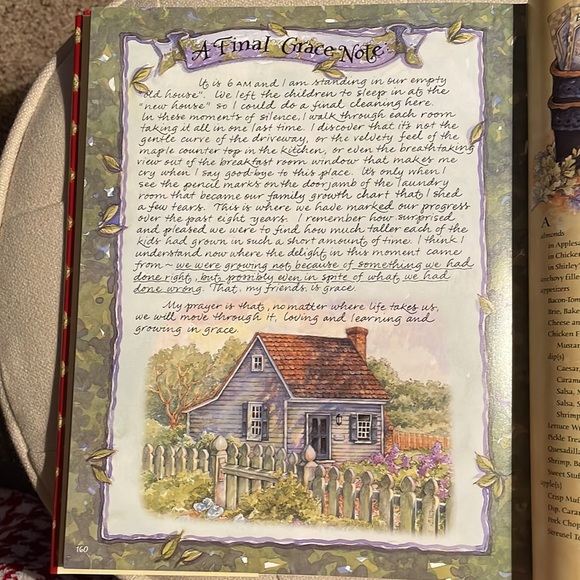 A Final Grace Note:
It is 6 AM and I am standing in our empty
"old house". I've left the children to sleep in at the
"new house" so I could do a final cleaning here.
In these moments of silence, I walk through each room
taking it all in one last time. I discover that it's not the
gentle curve of the driveway, or the velvety feel of the
maple counter top in the kitchen, or even the breathtaking
view out of the breakfast room window that makes me
cry when I say good-bye to this place. It's only when I
see the pencil marks on the doorjamb of the laundry
room that became our family growth chart that I shed
a few tears. This is where we have marked our progress
over the past eight years. I remember how surprised
and pleased we were to find how much taller each of the
kids had grown in such a short amount of time. I think I
understand now where the delight in this moment came
from – we were growing not because of something we had
done right, but possibly even in spite of what we had
done wrong. That, my friends, is grace.
My prayer is that, no matter where life takes us,
we will move through it, loving and learning and
growing in grace.
160
A
almonds
in Applesa
in Chicken
in Shirley'
Anchovy Fille
Appetizers
Bacon-Tom
Brie, Bake
Cheese an
Chicken F
Mustar
dip(s)
Caesar,
Caram
Salsa,
Salsa, S
Shrimp
Lettuce W
Pickle Tre
Quesadilla
Shrimp, B
Sweet Stuf
Apple(s)
Crisp Mu
Dip, Cara
Pork Chop
Streusel To